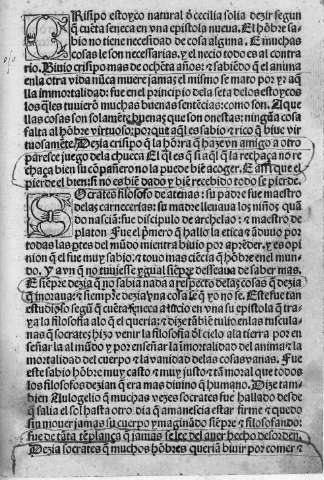 CRisipo estoyco natural d̄ cecilia solia dezir segun
q̄ cuēta seneca en vna epistola nueua. El hōbre sa-
bio no tiene necessidad de cosa alguna. E muchas
cosas le son necessarias. y el necio todo es al contra
rio. Biuio crispo mas de ochēta años: ⁊ sabiēdo q̄ el anima
en la otra vida nūca muere jamas el mismo se mato por yr a q̄
lla immortalidad: fue en el principio dela seta delos estoycos
los q̄les tuuierō muchas buenas sentēcias: como son. Aque
llas cosas son solamēte buenas que son onestas: ninguna cosa
falta al hōbre virtuoso: porque aql̄ es sabio ⁊ rico q̄ biue vir
tuosamēte. Dezia crispo q̄ la hōrra q̄ haze vn amigo a otro
paresce juego dela chueca El ql̄ es q̄ si aql̄ q̄ la rechaça no re
chaça bien su cōpañero no la puede biē acoger. E assi que el
pierde el biē si no es biē dado y biē recebido todo se pierde.
SOcrates filosofo de atenas: su padre fue maestro
delas carnecerias: su madre lleuaua los niños quā
do nasciā: fue discipulo de archelao: ⁊ maestro de
platon Fue el p̄mero q̄ hallo la etica ⁊ āduuo por
todas las p̄tes del mūdo mientra biuio por aprēder. y es opi
nion q̄ el fue muy sabio: ⁊ touo mas ciēcia q̄ hōbre enel mun
do. y avn q̄ no tuuiesse ygual siēpre desseaua de saber mas.
E siēpre dezia q̄ no sabia nada a respecto delas cosas q̄ dezia
q̄ inoraua: ⁊ siempre dezia vna cosa se q̄ yo no se. Este fue tan
estudioso segū q̄ cuēta seneca a lucio en vna su epistola q̄ tra-
ya la filosofia alo q̄ el queria: ⁊ dize tābiē tulio enlas tuscula-
nas q̄ socrates hizo venir la filosofia d̄l cielo ala tierra por en
señar la al mūdo y por enseñar la imortalidad del anima ⁊ la
mortalidad del cuerpo ⁊ la vanidad delas cosas vanas. Fue
este sabio hōbre muy casto ⁊ muy justo ⁊ tā moral que todos
los filosofos dezian q̄ era mas diuino q̄ humano. Dize tam-
bien Aulogelio q̄ muchas vezes socrates fue hallado desde
q̄ salia el sol hasta otro dia q̄ amanescia estar firme ⁊ quedo
sin mouer jamas su cuerpo ymaginādo siēpre ⁊ filosofando:
fue de tāta tēplança q̄ jamas se lee del auer hecho desorden.
Dezia socrates q̄ muchos hōbres queriā biuir por comer ⁊